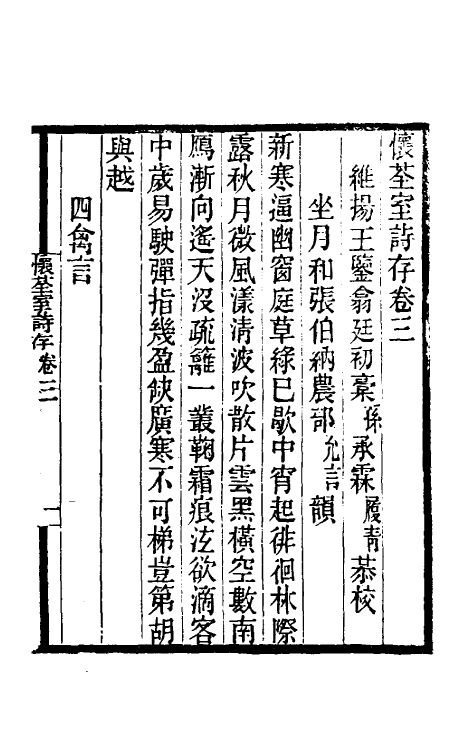 懷荃室詩存卷三
維揚王鑒翁廷初稾孫承霖履青恭校
坐月和張伯納農部允言韻
新寒逼幽窗庭草綠已歇中宵起徘徊林際
露秋月微風漾清波吹散片雲黑橫空數南
鴈漸向遙天沒疏籬一叢鞠霜痕泫欲滴客
中歲易駛彈指幾盈缺廣寒不可梯豈第胡
與越
四禽言
懷荃室詩存 卷三 一